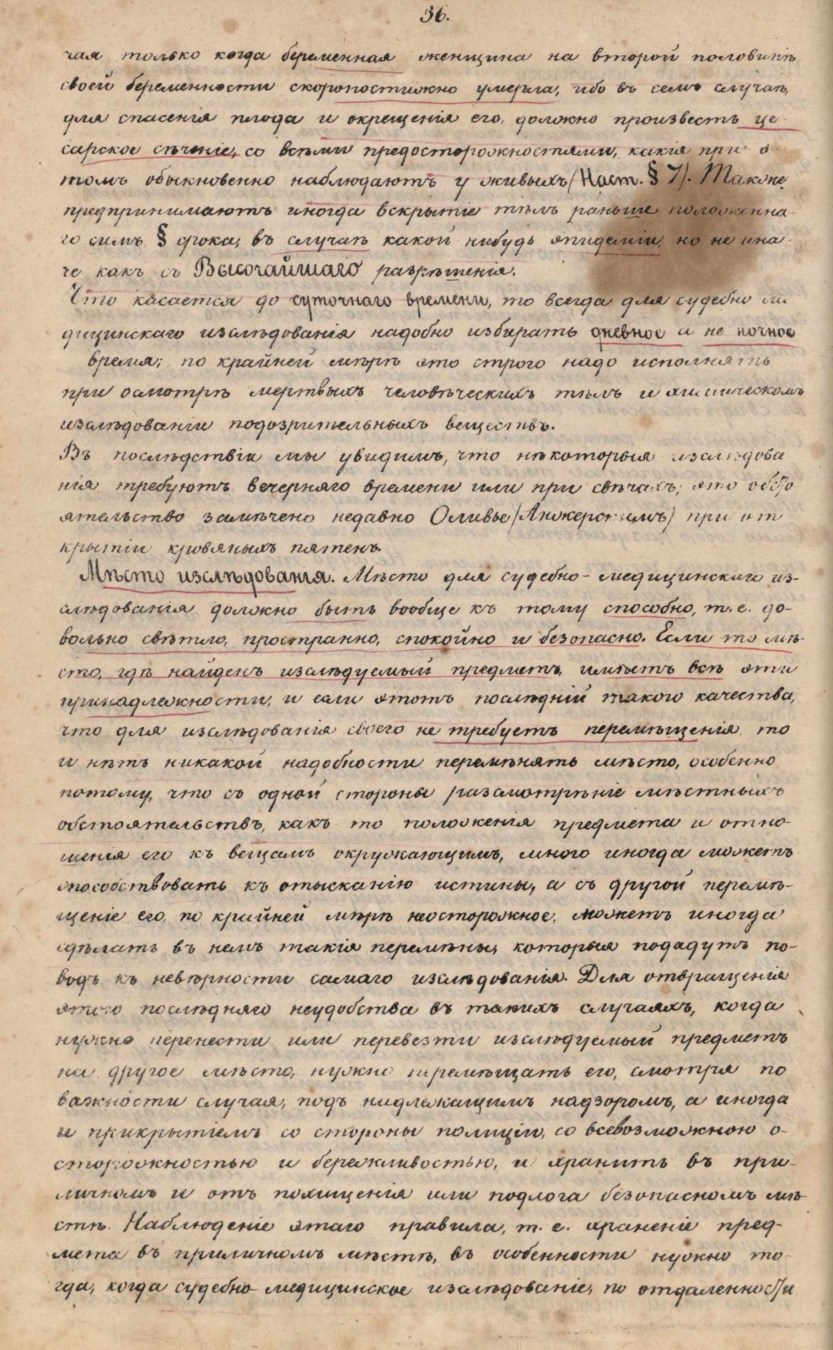 36.
чая только когда беременная женщина на второй половинѣ
своей беременности скоропостижно умерла, ибо въ семъ случаѣ,
для спасенія плода и окрещенія его должно произвесть це-
сарское сѣченіе, со всѣми предосторожностями, какія при э
томъ обыкновенно наблюдаютъ у живыхъ (Наст. § 7). Также
предпринимаютъ иногда вскрытіе тѣлъ раньше положенна-
го симъ § срока, въ случаѣ какой нибудь эпидеміи, но не ина-
че какъ съ Высочайшаго разрѣшенія.
Что касается до суточнаго времени, то всегда для судебно ме
дицинскаго изслѣдованія надобно избирать дневное а не ночное
время; по крайней мѣрѣ это строго надо исполнять
при осмотрѣ мертвыхъ человѣческихъ тѣлъ и химическомъ
изслѣдованіи подозрительныхъ веществъ.
Въ послѣдствіи мы увидимъ, что нѣкоторыя изслѣдова
нія требуютъ вечерняго времени или при свѣчахъ; это обсто
ятельство замѣчено недавно Оливье (Анжерскимъ) при от
крытіи кровяныхъ пятенъ.
Мѣсто изслѣдованія. Мѣсто для судебно-медицинскаго из-
слѣдованія должно быть вообще къ тому способно, т. е. до-
вольно свѣтло, пространно, спокойно и безопасно. Если то мѣ-
сто, гдѣ найденъ изслѣдуемый предметъ, имѣетъ всѣ эти
принадлежности, и если этотъ послѣдній такого качества,
что для изслѣдованія своего не требуетъ перемѣщенія, то
и нѣтъ никакой надобности перемѣнять мѣсто, особенно
потому, что съ одной стороны разсмотрѣніе мѣстныхъ
обстоятельствъ, какъ то положенія предмета и отно-
шенія его къ вещамъ окружающимъ, много иногда можетъ
способствовать къ отысканію истины, а съ другой перемѣ-
щеніе его, по крайней мѣрѣ неосторожное, можетъ иногда
сдѣлать въ немъ такія перемѣны, которыя подадутъ по-
водъ къ невѣрности самаго изслѣдованія. Для отвращенія
этого послѣдняго неудобства въ такихъ случаяхъ, когда
нужно перенести или перевезти изслѣдуемый предметъ
на другое мѣсто, нужно перемѣщать его, смотря по
важности случая, подъ надлежащимъ надзоромъ, а иногда
и прикрытіемъ со стороны полиціи, со всевозможною о-
сторожностью и бережливостью, и хранить въ при-
личномъ и отъ похищенія или подлога безопасномъ мѣ-
стѣ. Наблюденіе этаго правила, т. е. храненіе пред-
мета въ приличномъ мѣстѣ, въ особенности нужно то-
гда, когда судебно-медицинское изслѣдованіе, по отдаленности